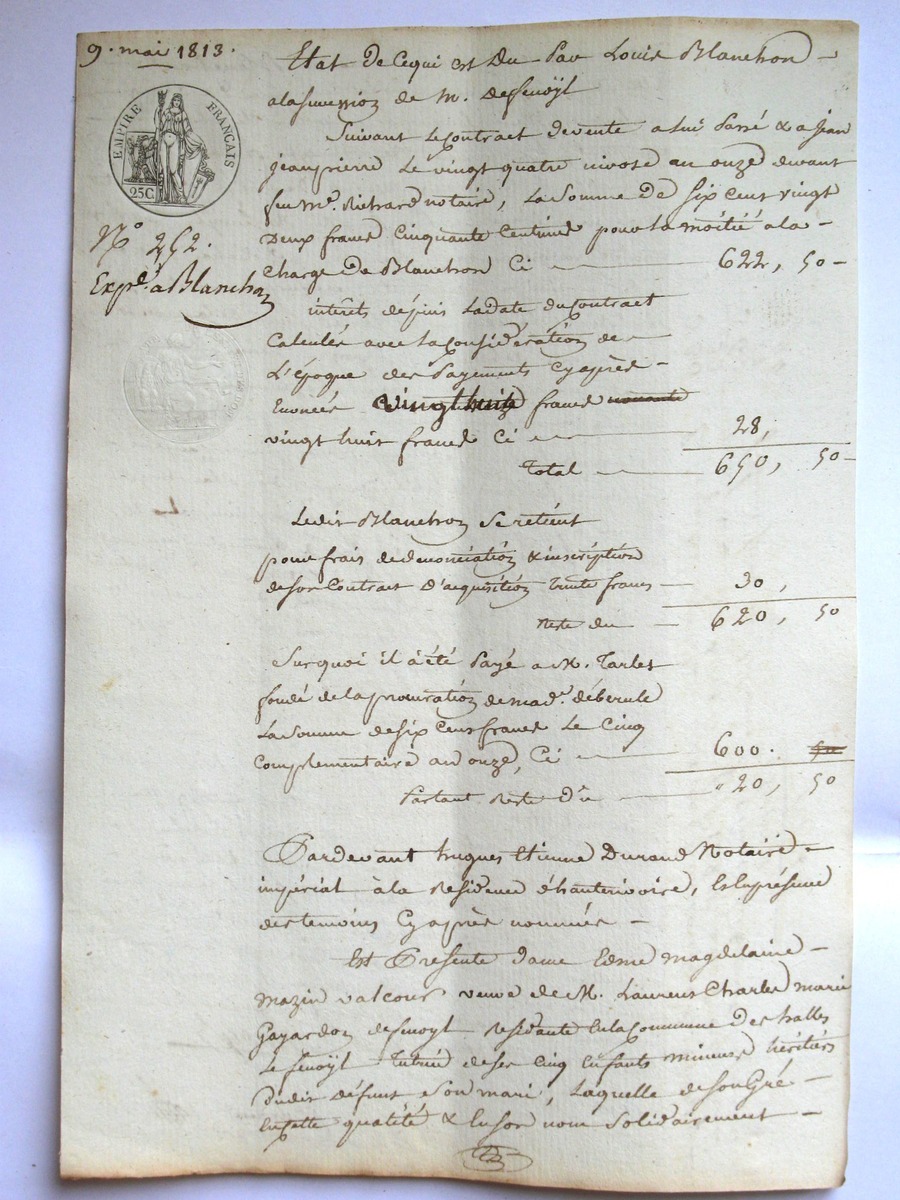 9. mai 1813.
EMPIRE FRANÇAIS
25C
N.o 252.
Exp.é a Blanchon
Etat de Cequi est Du Par Louis Blanchon -
alasucession de M. defenoÿl
Suivant Lecontract devente a lui Passé & a jean
jeanpierre Le vingt quatre nivose an onze devant
feu M.e Richard notaire, La Somme De Six cent vingt
Deux francs Cinquante Centimes pour la moitié ala -
Charge De Blanchon Ci 622, 50 -
intérêts depuis Ladate ducontract
Calculés avec la Considération de
L'époque des Payements Cyaprès -
Enoncés vingt huit francs
vingt huit francs Ci 28,
Total 650, 50 -
Ledit Blanchon Se retient
pour frais de denonciation & inscription
deson Contract D'acquisition trente francs - 30,
Reste du - 620, 50
Surquoi il à été Payé a M. Tarlet
fondé de la procuration de mad.e débérule
La Somme de Six Cens francs Le Cinq
Complementaire an onze, Ci 600.
Partant Reste Du " 20, 50
Pardevant hugues Etienne Durand Notaire -
impérial à la Residence d'hauterivoire, Et en présence
des temoins Cyaprès nommés -
Est Presente dame Edme magdelaine -
Mazin valcour veuve de M. Laurent Charles marie
Gayardon defenoyl residante En la Commune des halles
Le fenoÿl tutrice de ses Cinq Enfants mineurs héritiers
Dudit défunt Son mari, Laquelle de Son Gré -
En cette qualité & En Son nom Solidairement -